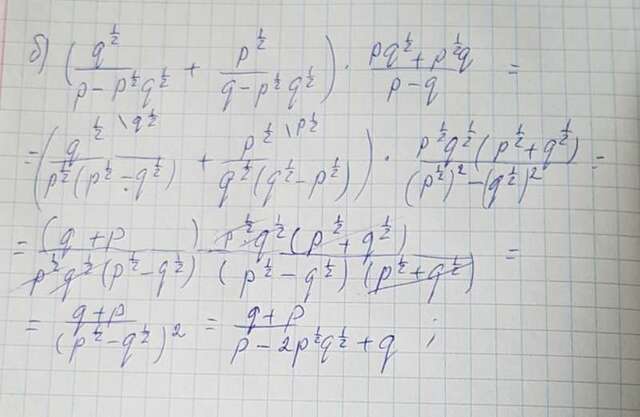 б) (q^½/(p - p^½q^½) + p^½/(q - p^½q^½)) · (pq^½ + p^½q)/(p - q) =
= (q^½ \q^½/(p^½(p^½ - q^½)) + p^½ \p^½/(q^½(q^½ - p^½))) · p^½q^½(p^½ + q^½)/((p^½)^2 - (q^½)^2) =
= (q + p) p^½q^½(p^½ + q^½)/(p^½q^½(p^½ - q^½) (p^½ - q^½)(p^½ + q^½)) =
= (q + p)/(p^½ - q^½)^2 = (q + p)/(p - 2p^½q^½ + q) ;